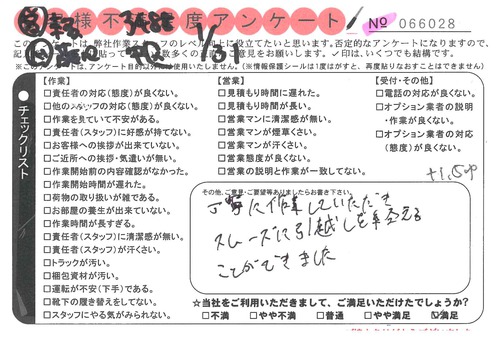 様不 度アンケート
No 066028
このアンケートは、弊社作業スタッフのレベル向上に役立てたいと思います。否定的なアンケートになりますので、
数多くの正直なご意見お願いします。✓印は、いくつでも結構です。
※このアンケートは、アンケート目的以外には使用いたしません。(※情報保護シールは1度はがすと、再度貼りなおすことはできません)
チェックリスト
【作業】
□責任者の対応(態度)が良くない。
□他のスタッフの対応(態度)が良くない。
□作業を見ていて不安がある。
□責任者(スタッフ)に好感が持てない。
□お客様への挨拶が出来ていない。
□ご近所への挨拶・気遣いが無い。
□作業開始前の内容確認がなかった。
□作業開始時間が遅れた。
□荷物の取り扱いが雑である。
□お部屋の養生が出来ていない。
□作業時間が長すぎる。
□責任者(スタッフ)に清潔感が無い。
□責任者(スタッフ)が汗くさい。
□トラックが汚い。
□梱包資材が汚い。
□運転が不安(下手)である。
□靴下の履き替えをしてない。
□スタッフにやる気がみられない。
【営業】
□見積もり時間に遅れた。
□見積もり時間が長い。
□営業マンに清潔感が無い。
□営業マンが煙草くさい。
□営業マンが汗くさい。
□営業態度が良くない。
□営業の説明と作業が一致してない。
【受付・その他】
□電話の対応が良くない。
□オプション業者の説明
・作業が良くない。
□オプション業者の対応
(態度)が良くない。
その他、ご意見・ご要望等ありましたらお書き下さい。
丁寧に作業していただき
スムーズに引越しを終える
ことができました
☆当社をご利用いただきまして、ご満足いただけたでしょうか?
□不満 □やや不満 □普通 □やや満足 ☑満足